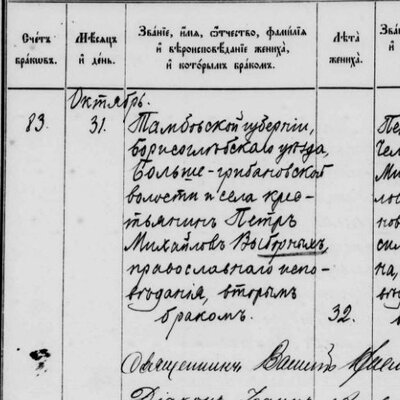 Счетъ браковъ.
Мѣсяцъ и день.
Званіе, имя, отчество, фамилія
и вѣроисповѣданіе жениха,
и которымъ бракомъ.
Лѣта жениха.
Октябрь.
83. 31. Тамбовской губерніи,
Борисоглѣбскаго уѣзда,
Больше-грибановской
волости и села кре-
стьянинъ Петръ
Михайловъ Выборныхъ,
православнаго испо-
вѣданія, вторымъ
бракомъ. 32.
Священникъ